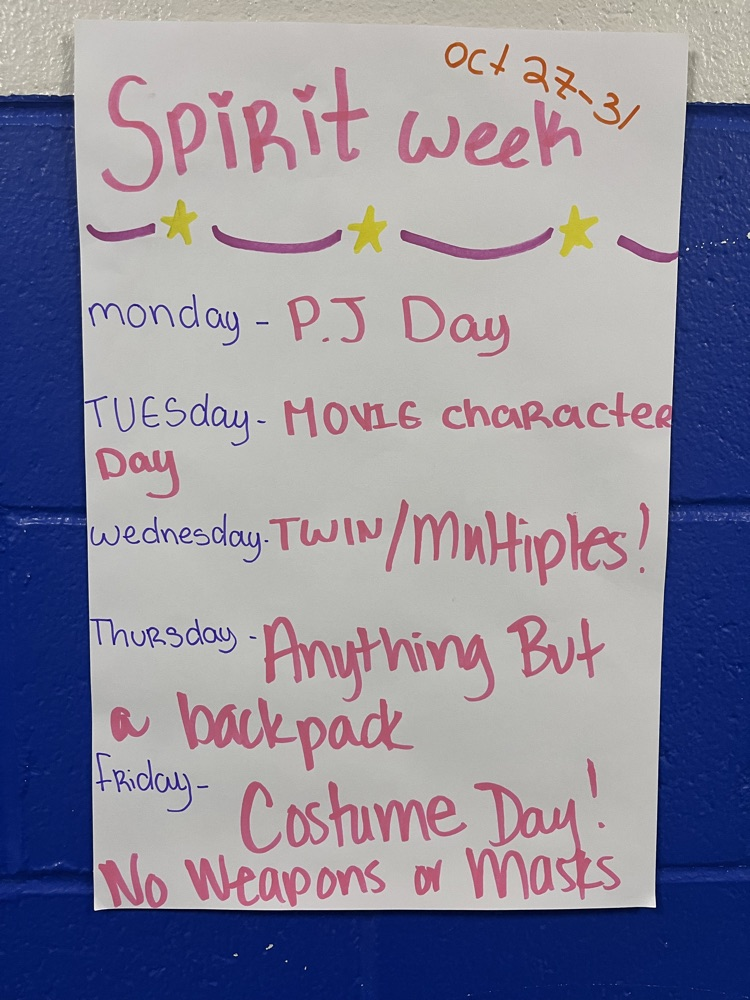 Oct 27-31
Spirit week
monday - P.J Day
TUESday - MOVIE character
Day
wednesday - TWIN/Multiples!
Thursday - Anything But
a backpack
friday -
Costume Day!
No Weapons or Masks